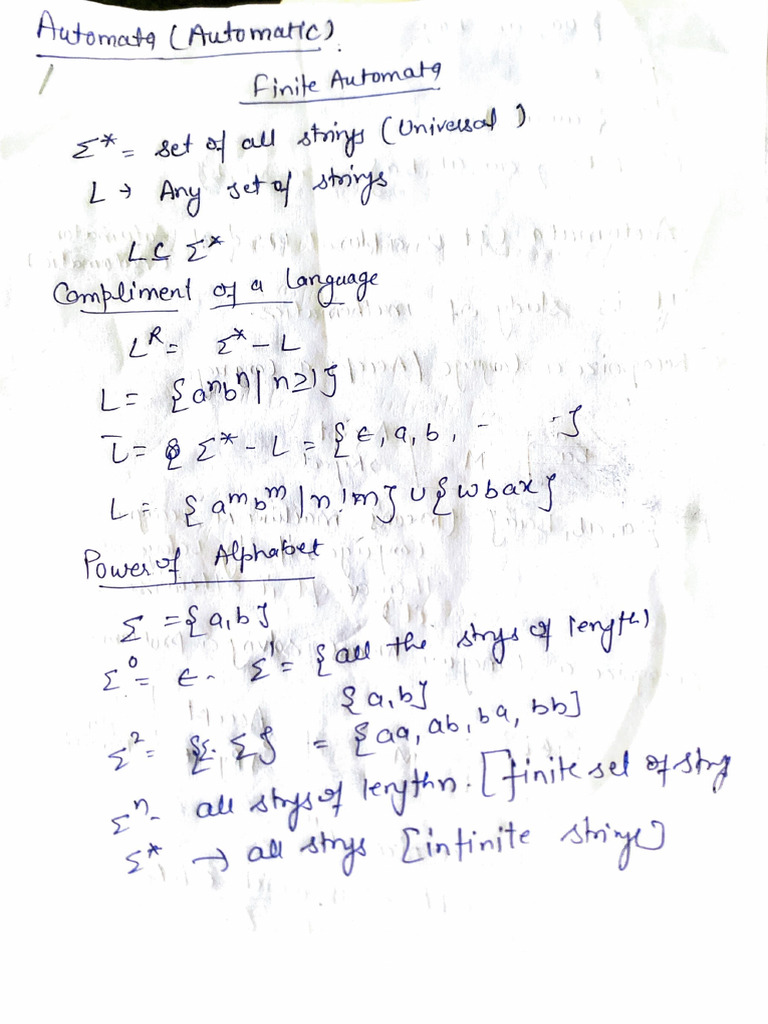 Automata (Automatic).
Finite Automata
Σ* = set of all strings (Universal)
L → Any set of strings
L ⊆ Σ*
Compliment of a Language
L^R = Σ* - L
L = {a^n b^n | n ≥ 1}
L̅ = Σ* - L = {ϵ, a, b, - - }
L = {a^m b^m | n ! m} ∪ {wbax}
Power of Alphabet
Σ = {a, b}
Σ^0 = ϵ. Σ^1 = {all the strys of length 1
{a, b}
Σ^2 = {Σ. Σ} = {aa, ab, ba, bb}
Σ^n - all strys of length n. [finite set of stry
Σ* → all strys [infinite strings]